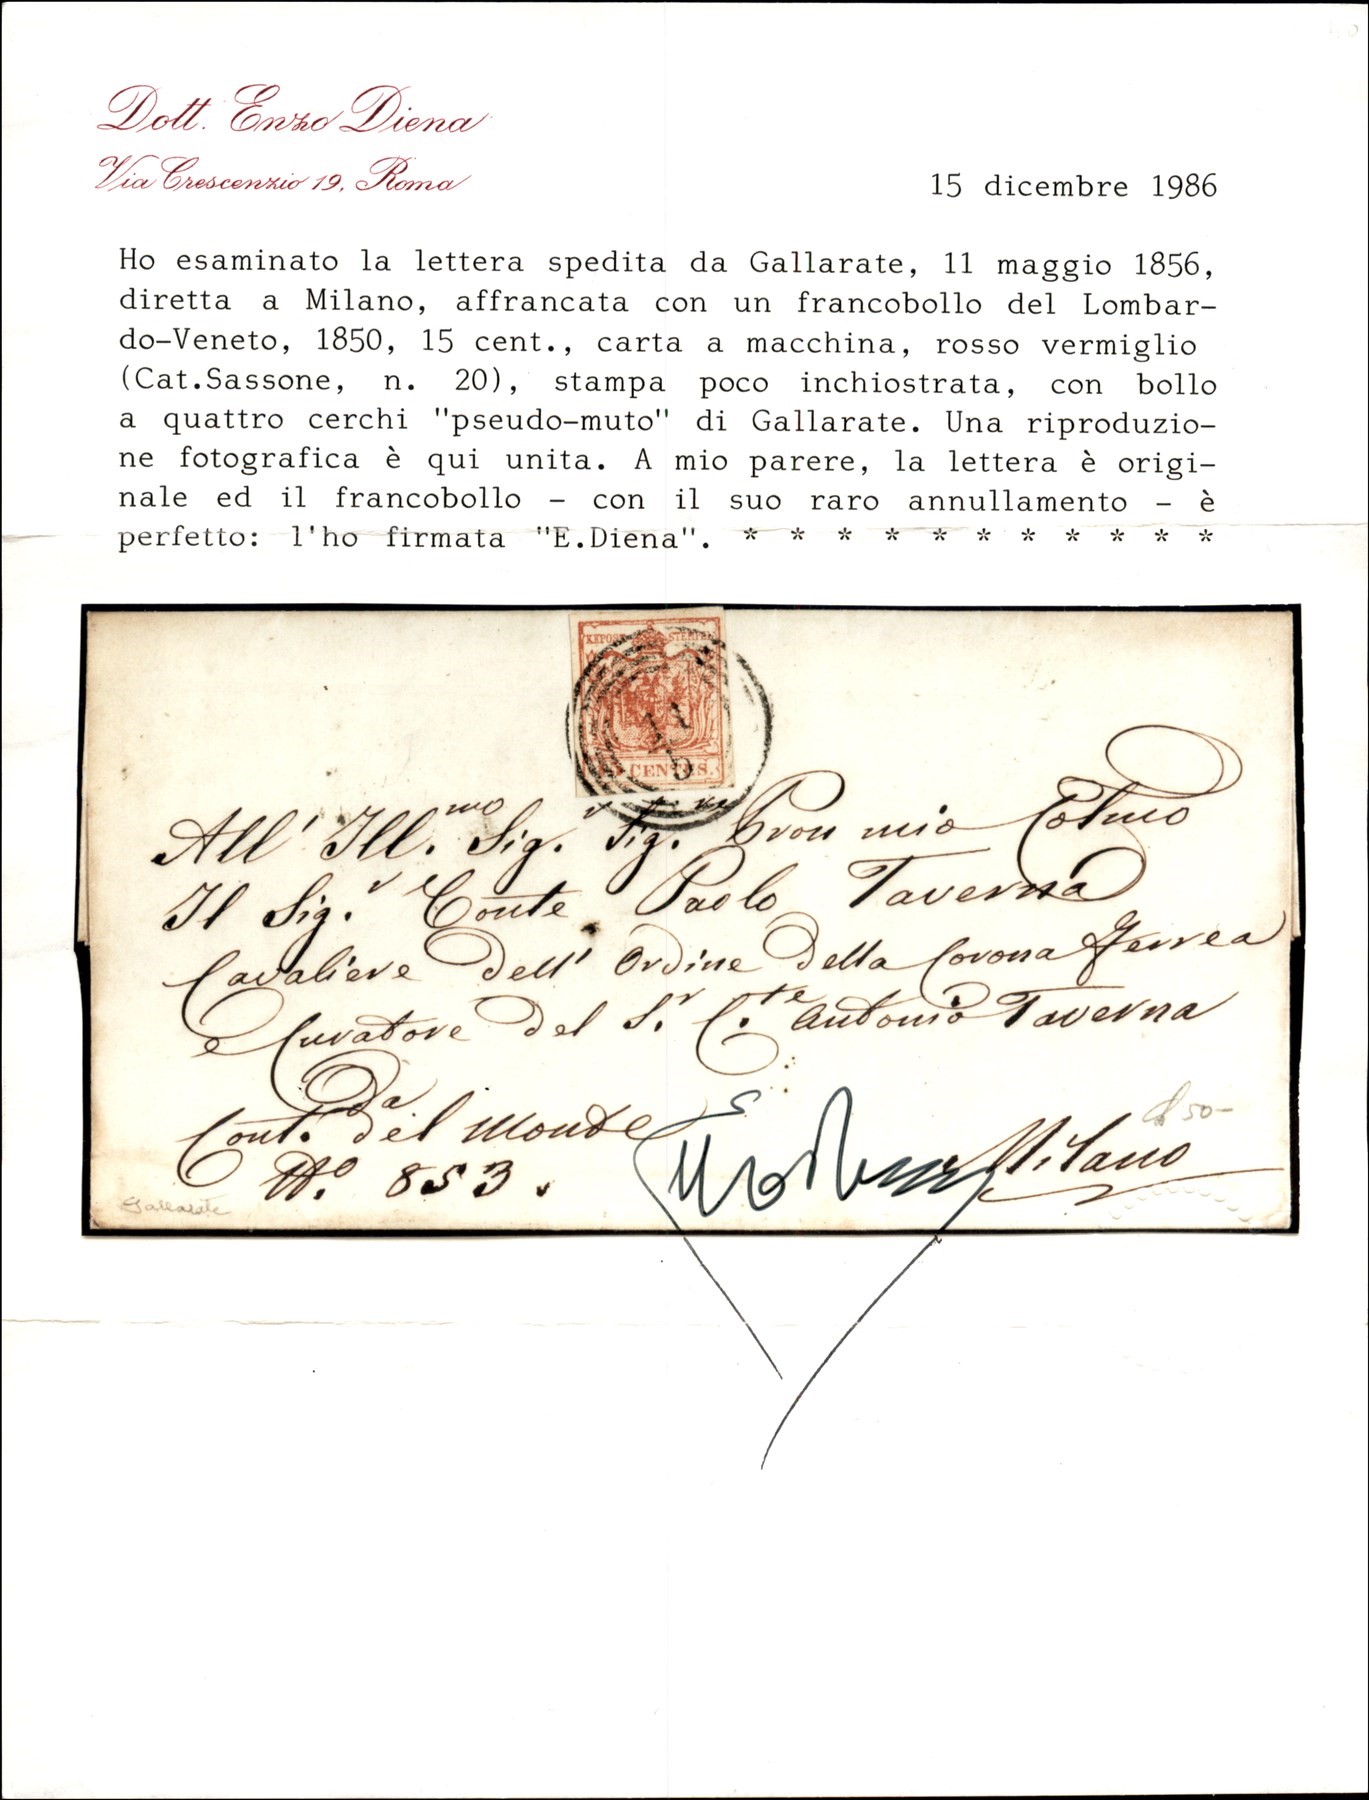 Dott. Enzo Diena
Via Crescenzio 19, Roma
15 dicembre 1986
Ho esaminato la lettera spedita da Gallarate, 11 maggio 1856,
diretta a Milano, affrancata con un francobollo del Lombar-
do-Veneto, 1850, 15 cent., carta a macchina, rosso vermiglio
(Cat.Sassone, n. 20), stampa poco inchiostrata, con bollo
a quattro cerchi "pseudo-muto" di Gallarate. Una riproduzio-
ne fotografica è qui unita. A mio parere, la lettera è origi-
nale ed il francobollo - con il suo raro annullamento - è
perfetto: l'ho firmata "E.Diena". * * * * * * * * * * *
11
5
All' Ill.mo Sig.r Sig. mio
Il Sig.r Conte Paolo Taverna
Cavaliere dell' Ordine della Corona Ferrea
e Curatore del S.r C.te Antonio Taverna
Cont.da del Monte
N.o 853.
Milano
Gallarate